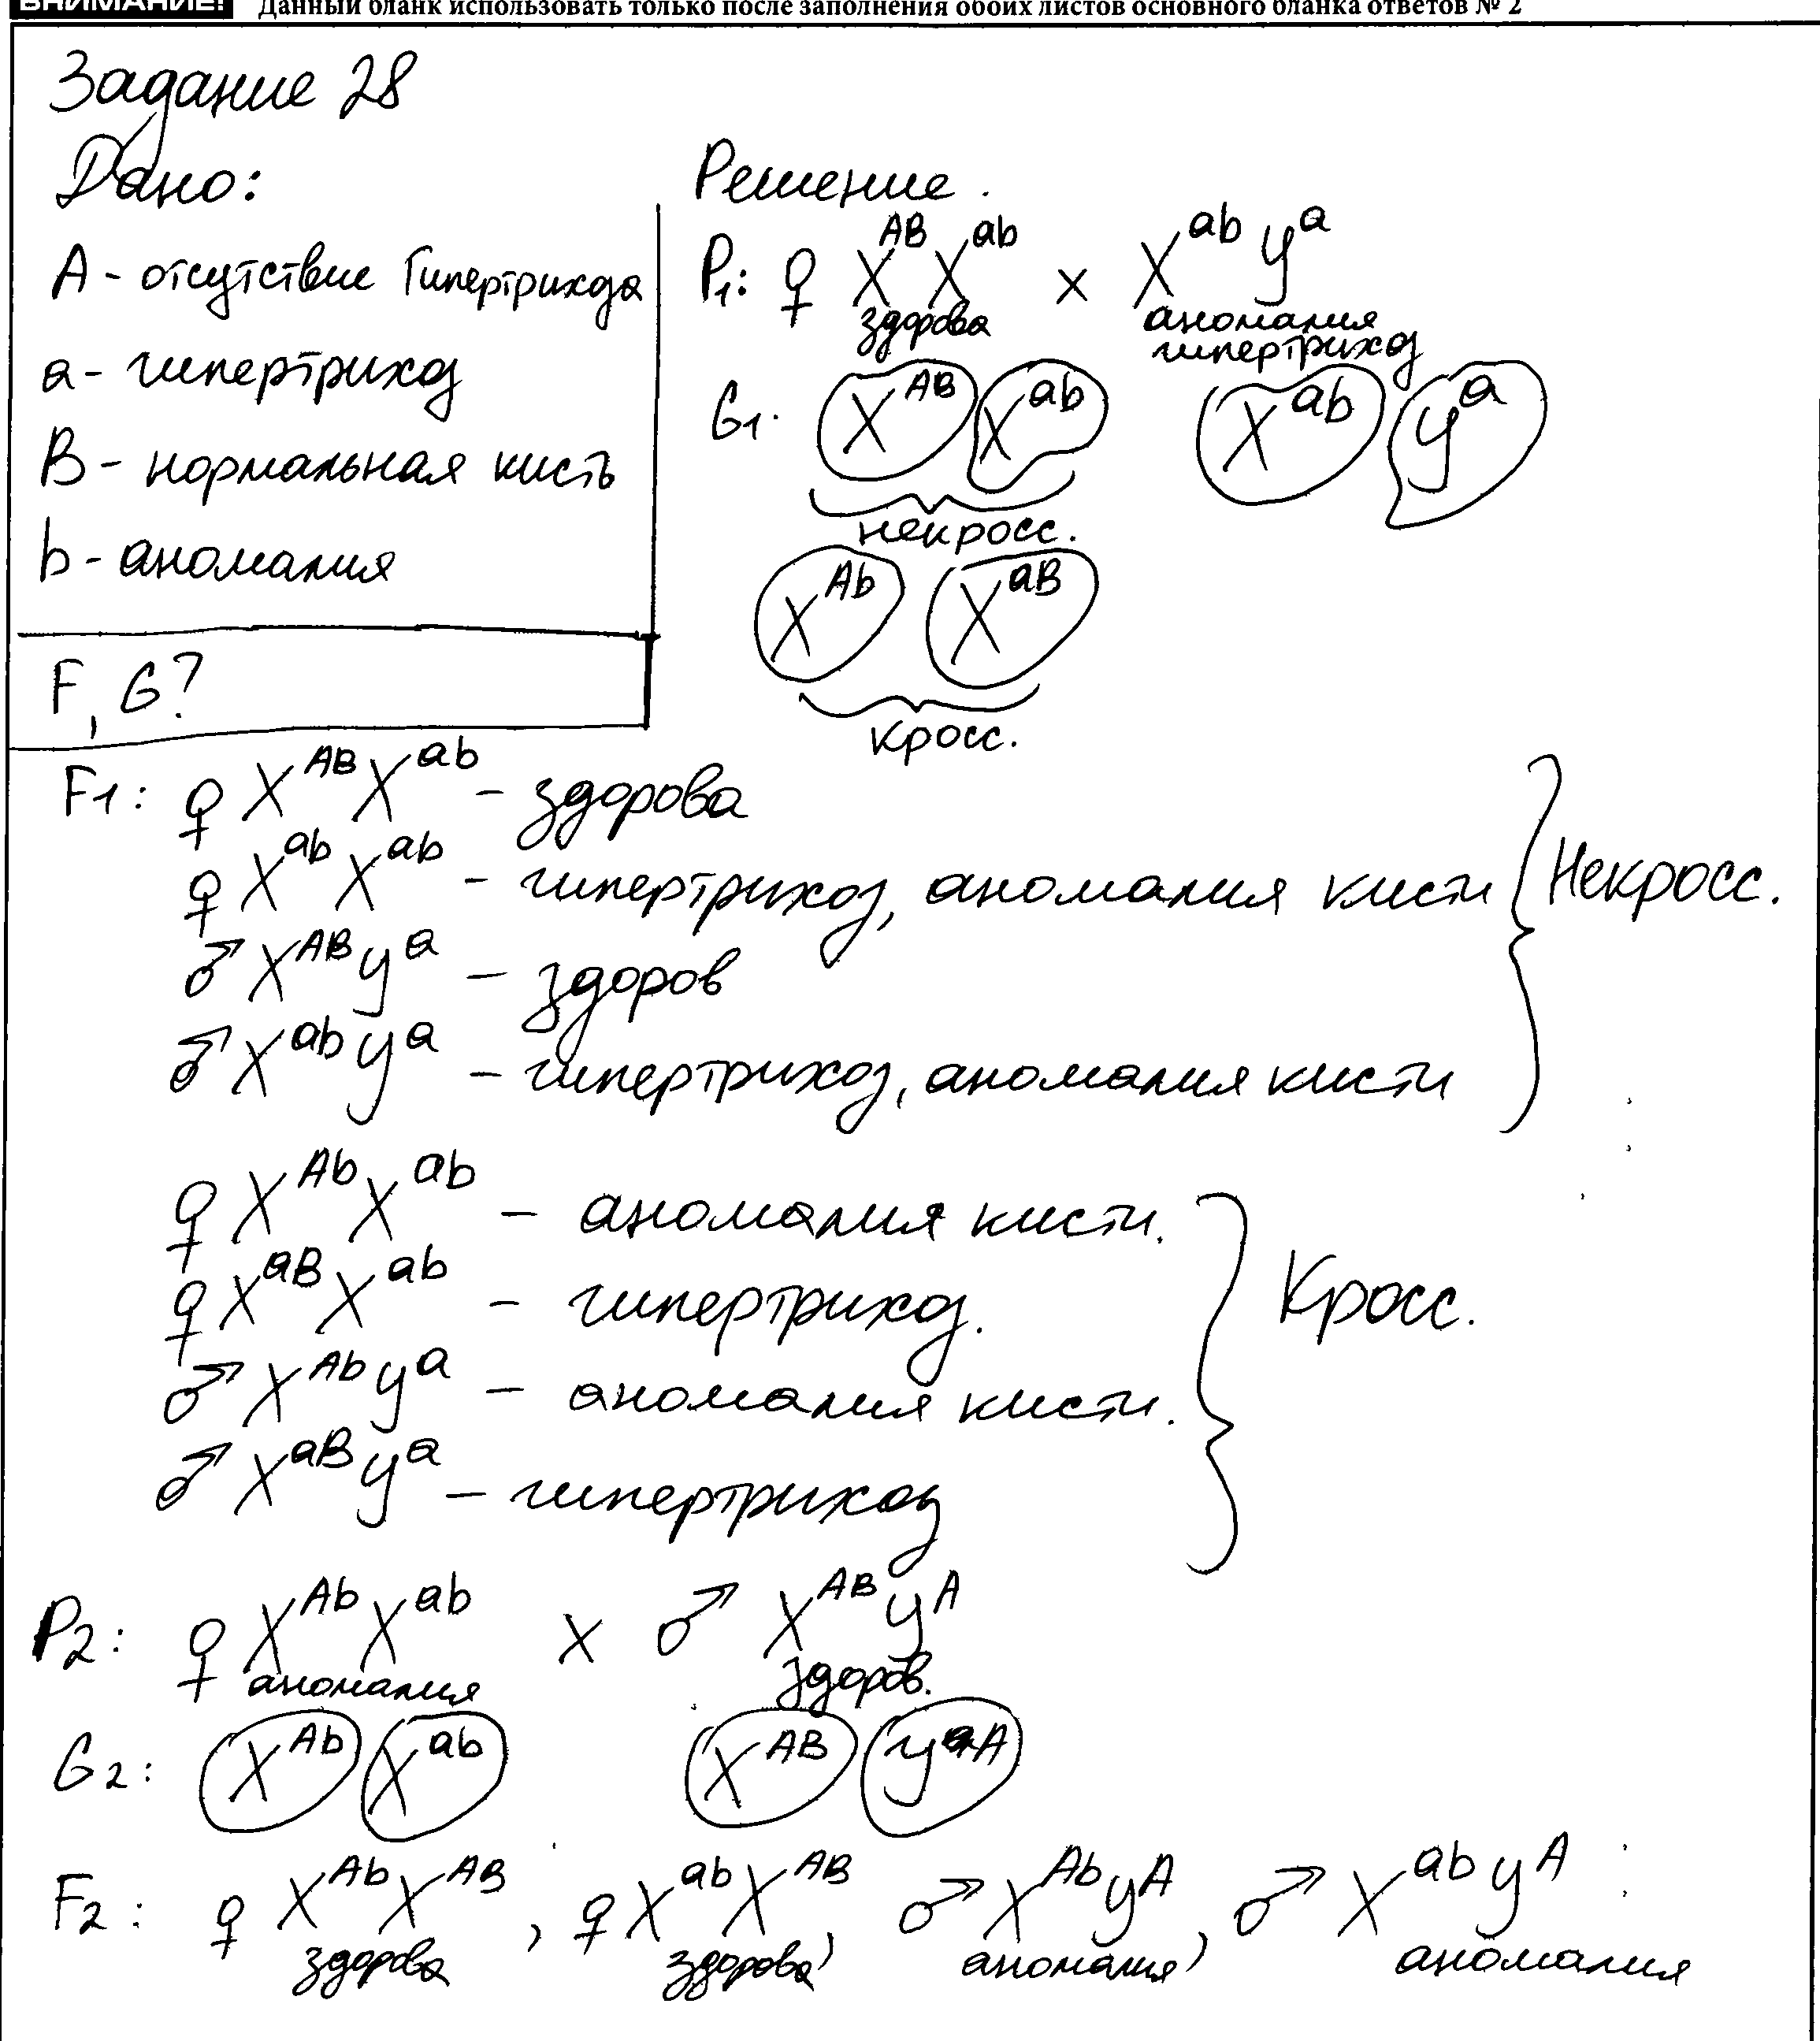 ВНИМАНИЕ! Данный бланк использовать только после заполнения обоих листов основного бланка ответов № 2
Задание 28
Дано:
A - отсутствие Гипертрихоза
a - гипертрихоз
B - нормальная кисть
b - аномалия
F, G?
Решение.
P1: ♀ X^AB X^ab × X^ab Y^a
здорова аномалия
гипертрихоз
G1. X^AB X^ab X^ab Y^a
некросс.
X^Ab X^aB
кросс.
F1: ♀ X^AB X^ab - здорова
♀ X^ab X^ab - гипертрихоз, аномалия кисти
♂ X^AB Y^a - здоров
♂ X^ab Y^a - гипертрихоз, аномалия кисти
Некросс.
♀ X^Ab X^ab - аномалия кисти.
♀ X^aB X^ab - гипертрихоз.
♂ X^Ab Y^a - аномалия кисти.
♂ X^aB Y^a - гипертрихоз
Кросс.
P2: ♀ X^Ab X^ab × ♂ X^AB Y^A
аномалия здоров.
G2: X^Ab X^ab X^AB Y^A
F2: ♀ X^Ab X^AB, ♀ X^ab X^AB, ♂ X^Ab Y^A, ♂ X^ab Y^A
здорова здорова аномалия аномалия